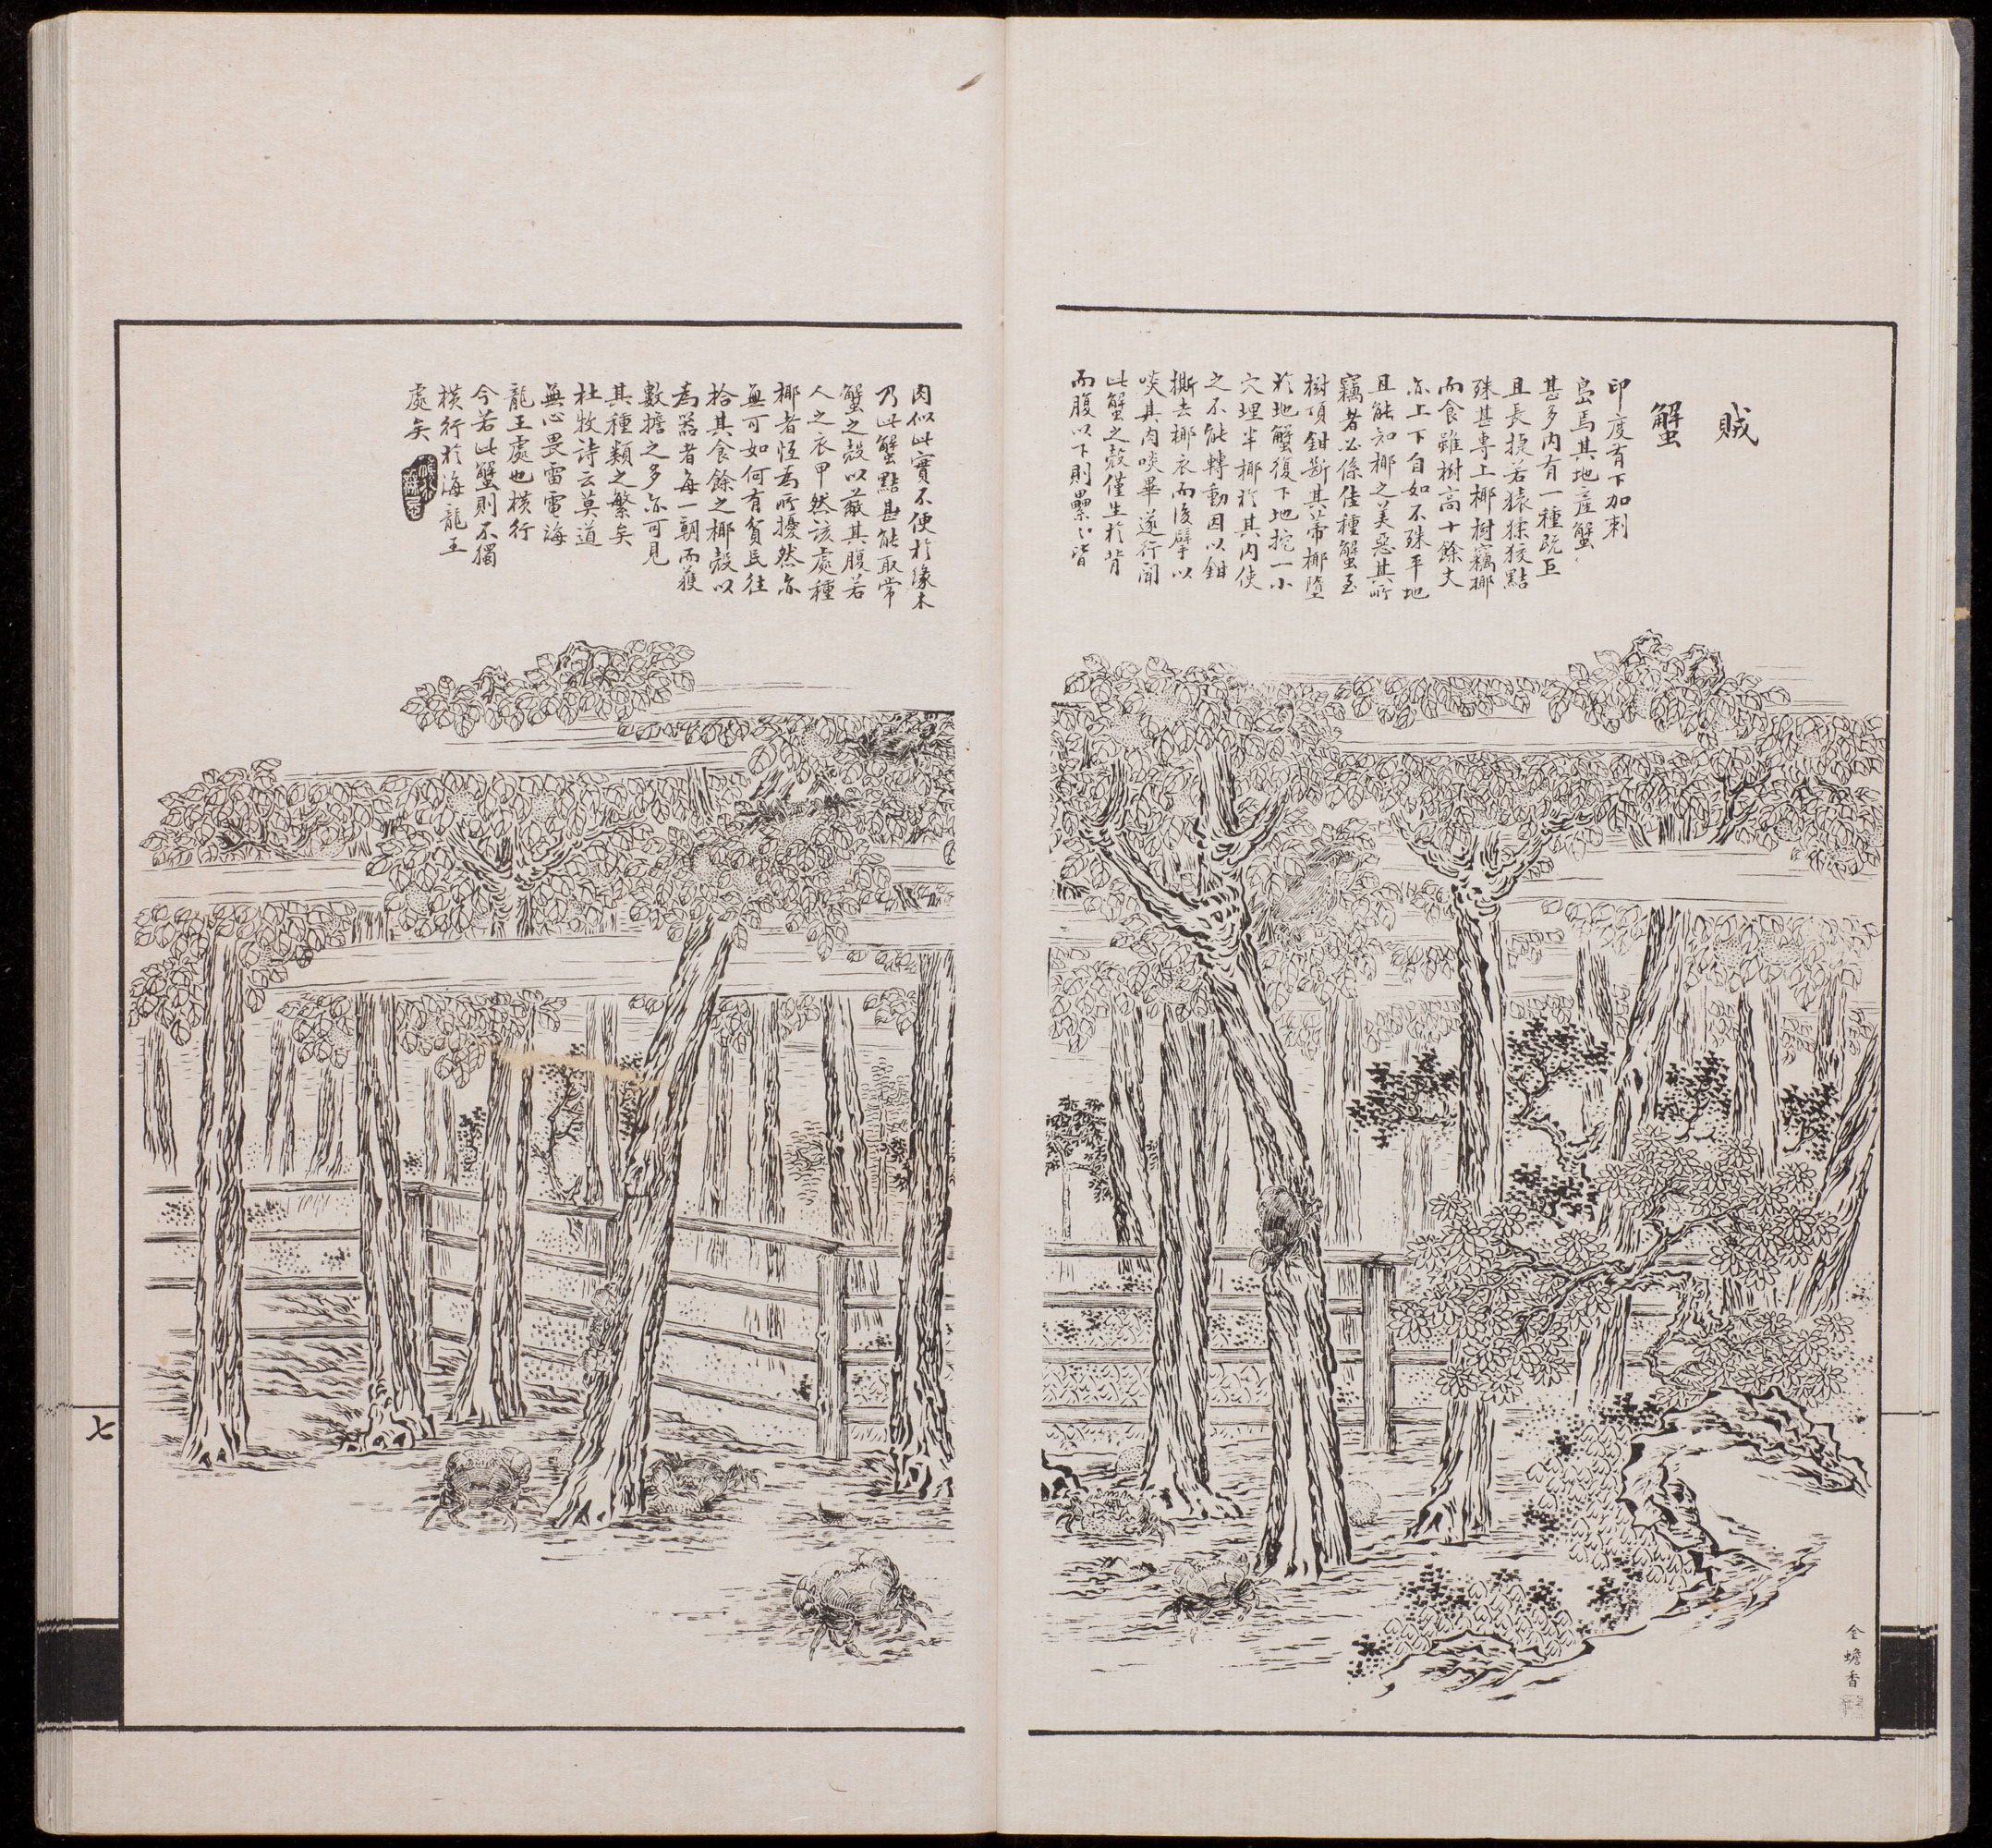 賊
蟹
印度有下加刺
島焉其地產蟹
甚多內有一種既巨
且長捷若猿猱狡黠
殊甚專上椰樹竊椰
而食雖樹高十餘丈
亦上下自如不殊平地
且能知椰之美惡其所
竊者必係佳種蟹至
樹頂鉗斷其蒂椰墮
於地蟹復下地挖一小
穴埋半椰於其內使
之不能轉動因以鉗
撕去椰衣而後擘以
啖其肉啖畢遂行聞
此蟹之殼僅生於背
而腹以下則纍纍皆
肉似此實不便於緣木
乃此蟹黠甚能取常
蟹之殼以蔽其腹若
人之衣甲然該處種
椰者恆為所擾然亦
無可如何有貧民往
拾其食餘之椰殼以
為器者每一朝而獲
數擔之多亦可見
其種類之繁矣
杜牧詩云莫道
無心畏雷電海
龍王處也橫行
今若此蟹則不獨
橫行於海龍王
處矣
金蟾香
七